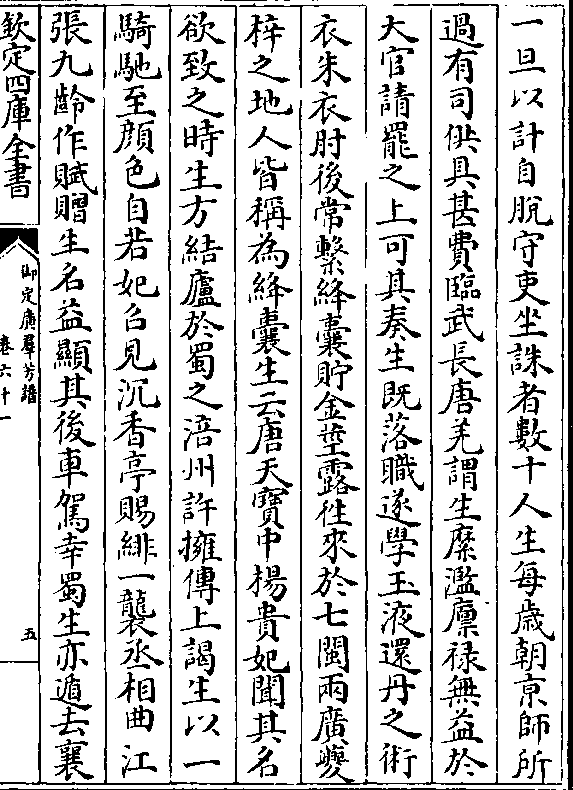 一旦以計自脫守吏坐誅者數十人生每歲朝京師所
過有司供具甚費臨武長唐羌謂生糜濫廩祿無益於
大官請罷之上可其奏生既落職遂學玉液還丹之術
衣朱衣肘後常繫絳囊貯金莖露徃來於七閩兩廣夔
梓之地人皆稱為絳囊生云唐天寶中楊貴妃聞其名
欲致之時生方結廬於蜀之涪州許擁傳上謁生以一
騎馳至顔色自若妃召見沉香亭賜緋一襲丞相曲江
張九齡作賦贈生名益顯其後車駕幸蜀生亦遁去襄
欽定四庫全書
御定廣羣芳譜
卷六十一
五